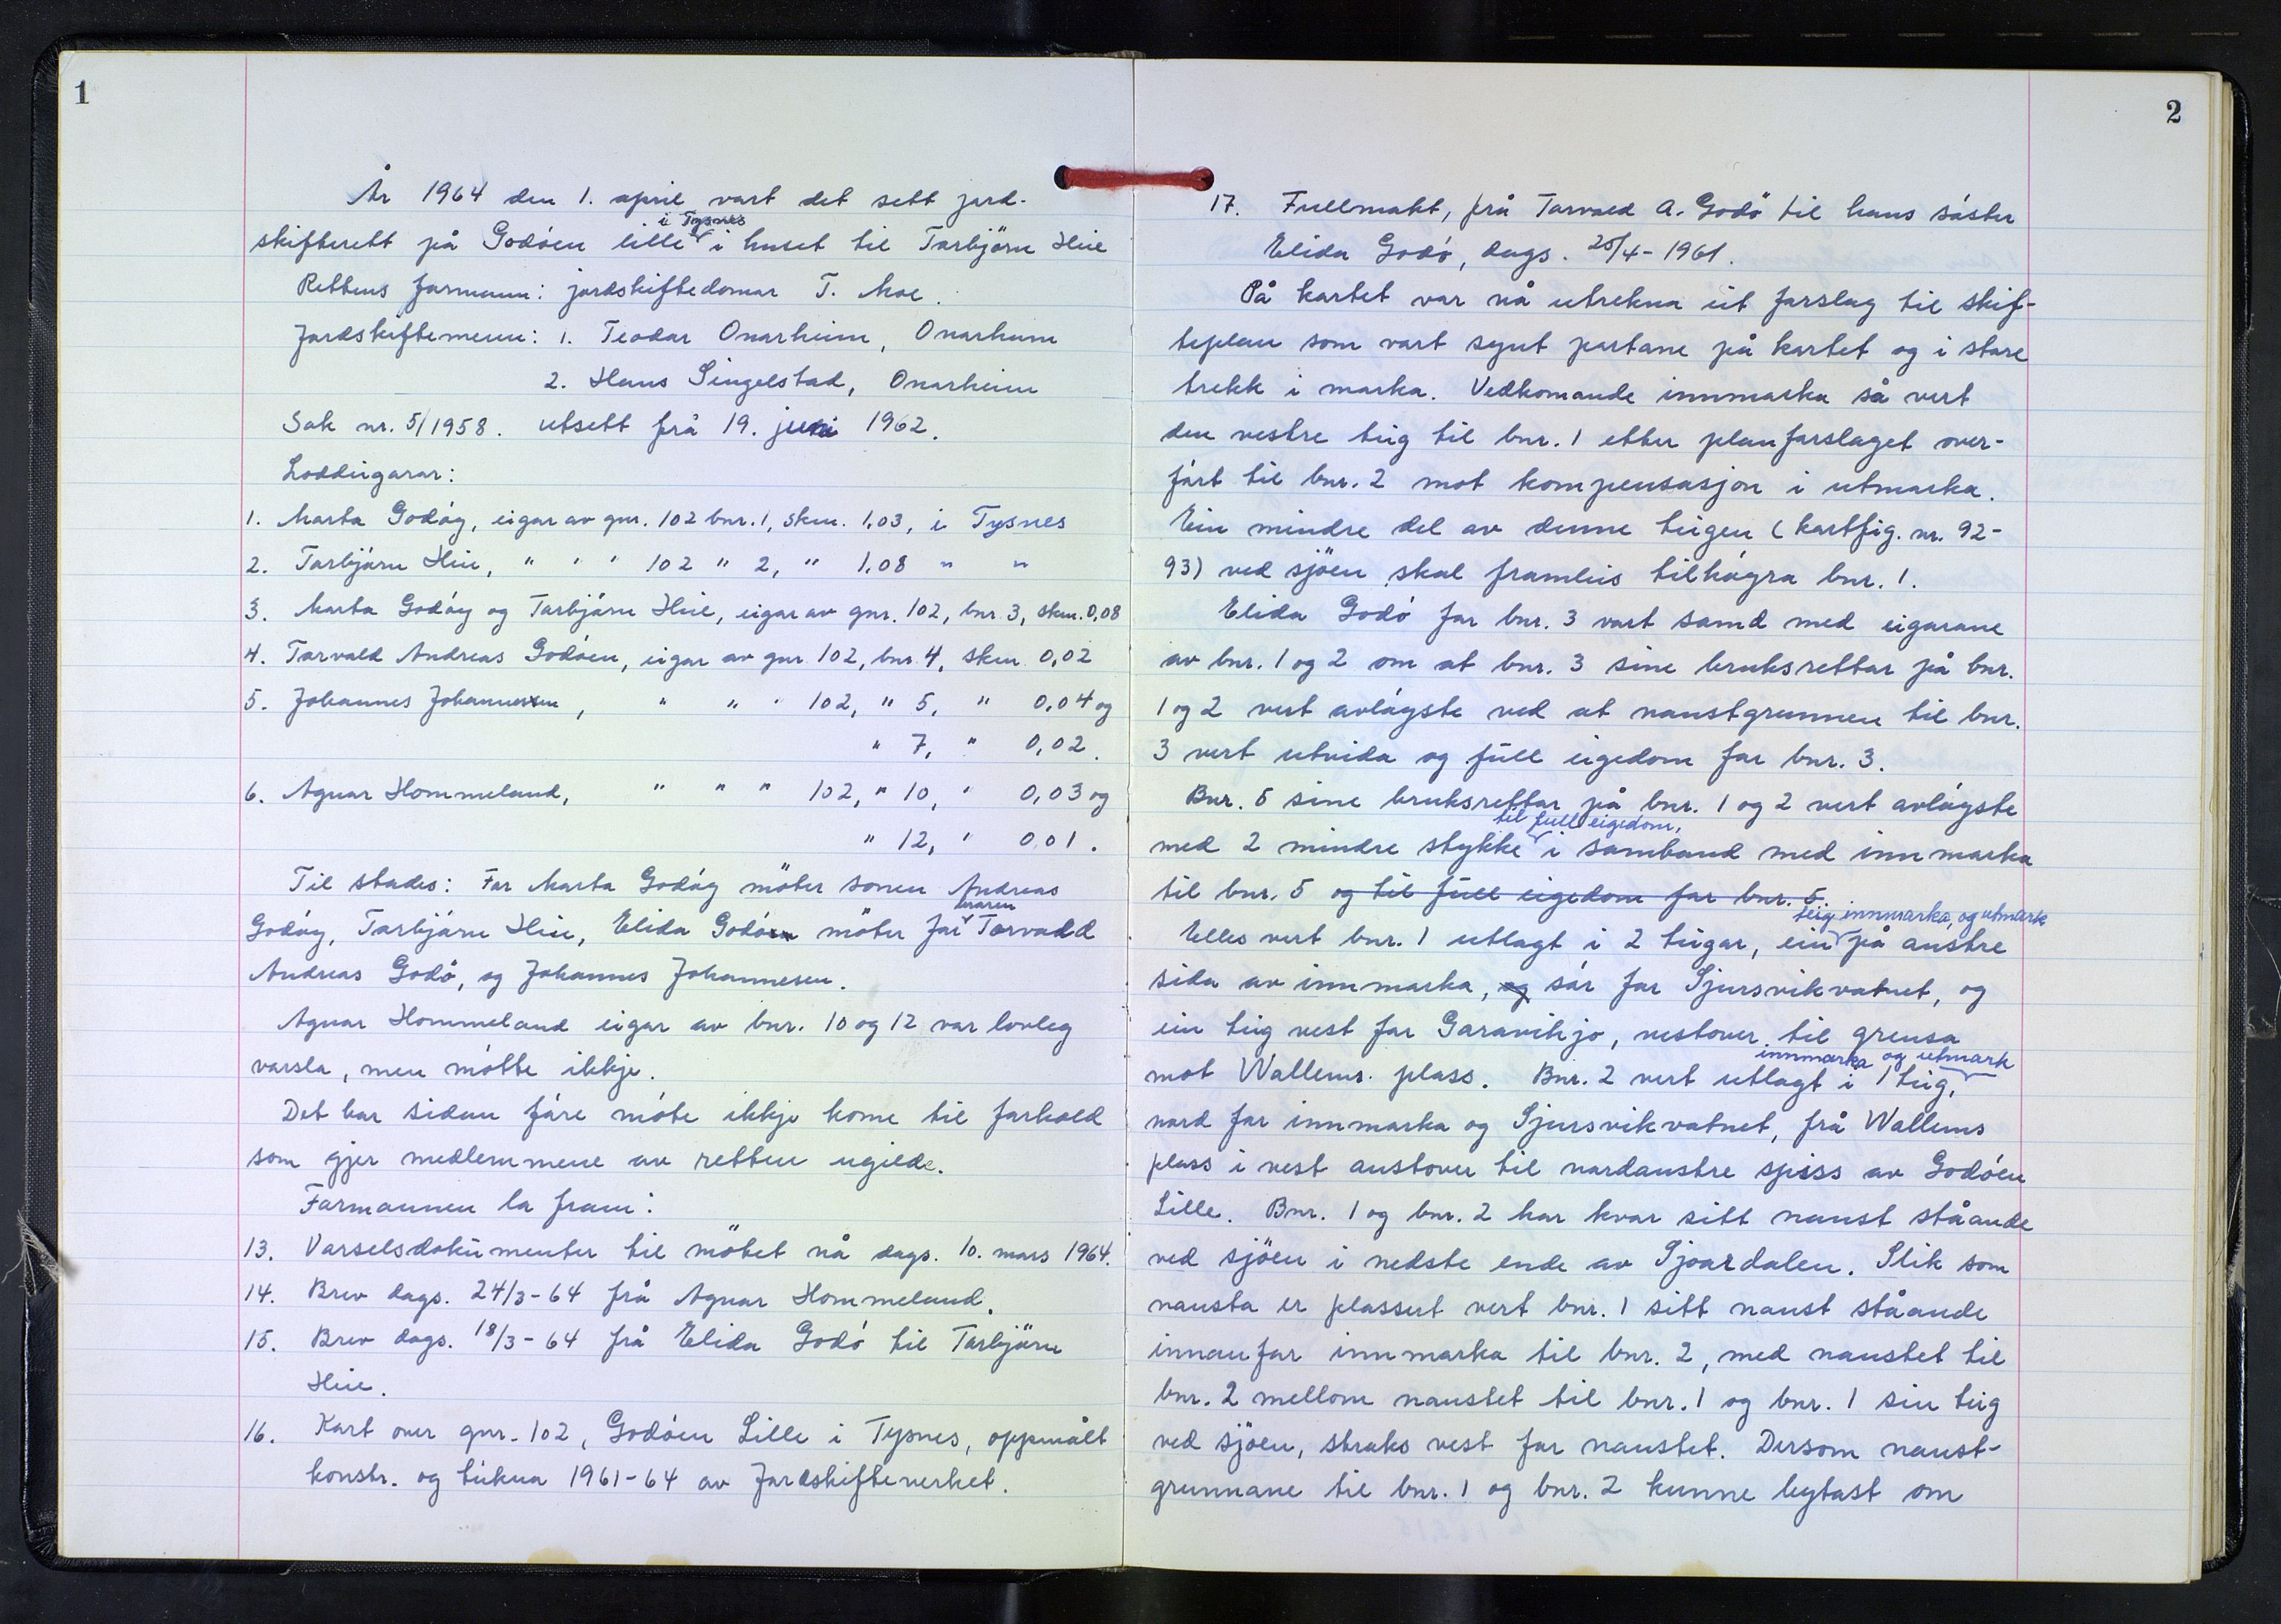 1
År 1964 den 1. april vart det sett jord-
i Tysnes
skifterett på Godöen lille i huset til Torbjörn Hiie
Rettens formann: jordskiftedomar T. Moe.
Jordskiftemenn: 1. Teodor Onarheim, Onarheim
2. Hans Singelstad, Onarheim
Sak nr. 5/1958. utsett frå 19. juni 1962.
Loddeigarar:
1. Marta Godöy, eigar av gnr. 102 bnr. 1, skm. 1,03, i Tysnes
2. Torbjörn Hiie, " " " 102 " 2, " 1,08 " "
3. Marta Godöy og Torbjörn Hiie, eigar av gnr. 102, bnr 3, skm. 0,08
4. Torvald Andreas Godöen, eigar av gnr 102, bnr 4, skm 0,02
5. Johannes Johannesen, " " " 102, " 5, " 0,04 og
" 7, " 0,02.
6. Agnar Hommeland, " " " 102, " 10, " 0,03 og
" 12, " 0,01.
Til stades: For Marta Godöy möter sonen Andreas
broren
Godöy, Torbjörn Hiie, Elida Godö möter for Torvald
Andreas Godö, og Johannes Johannesen.
Agnar Hommeland eigar av bnr. 10 og 12 var lovleg
varsla, men mötte ikkje.
Det har sidan före möte ikkje kome til forhold
som gjer medlemmene av retten ugilde.
Formannen la fram:
13. Varselsdokumenter til mötet nå dags. 10. mars 1964.
14. Brev dags. 24/3-64 frå Agnar Hommeland.
15. Brev dags. 18/3-64 frå Elida Godö til Torbjörn
Hiie.
16. Kart over gnr. 102, Godöen Lille i Tysnes, oppmålt
konstr. og teikna 1961-64 av Jordskifteverket.
2
17. Fullmakt, frå Torvald A. Godö til hans söster
Elida Godö, dags. 25/4-1961.
På kartet var nå utrekna eit forslag til skif-
teplan som vart synt partane på kartet og i store
trekk i marka. Vedkomande innmarka så vert
den vestre teig til bnr. 1 etter planforslaget over-
fört til bnr. 2 mot kompensasjon i utmarka.
Ein mindre del av denne teigen (kartfig. nr. 92-
93) ved sjöen skal framleis tilhögra bnr. 1.
Elida Godö for bnr. 3 vart samd med eigarane
av bnr. 1 og 2 om at bnr. 3 sine bruksrettar på bnr.
1 og 2 vert avlöyste ved at naustgrunnen til bnr.
3 vert utvida og full eigedom for bnr. 3.
Bnr. 5 sine bruksrettar på bnr. 1 og 2 vert avlöyste
til full eigedom,
med 2 mindre stykke i samband med innmarka
til bnr. 5 og til full eigedom for bnr. 5.
teig innmarka, og utmark
Elles vert bnr. 1 utlagt i 2 teigar, ein på austre
sida av innmarka, og sör for Sjursvikvatnet, og
ein teig vest for Garavikjo, vestover til grensa
innmarka og utmark
mot Wallems plass. Bnr. 2 vert utlagt i 1 teig,
nord for innmarka og Sjursvikvatnet, frå Wallems
plass i vest austover til nordaustre spiss av Godöen
Lille. Bnr. 1 og bnr. 2 har kvar sitt naust ståande
ved sjöen i nedste ende av Sjoardalen. Slik som
nausta er plassert vert bnr. 1 sitt naust ståande
innanfor innmarka til bnr. 2, med naustet til
bnr. 2 mellom naustet til bnr. 1 og bnr. 1 sin teig
ved sjöen, straks vest for naustet. Dersom naust-
grunnane til bnr. 1 og bnr. 2 kunne bytast om